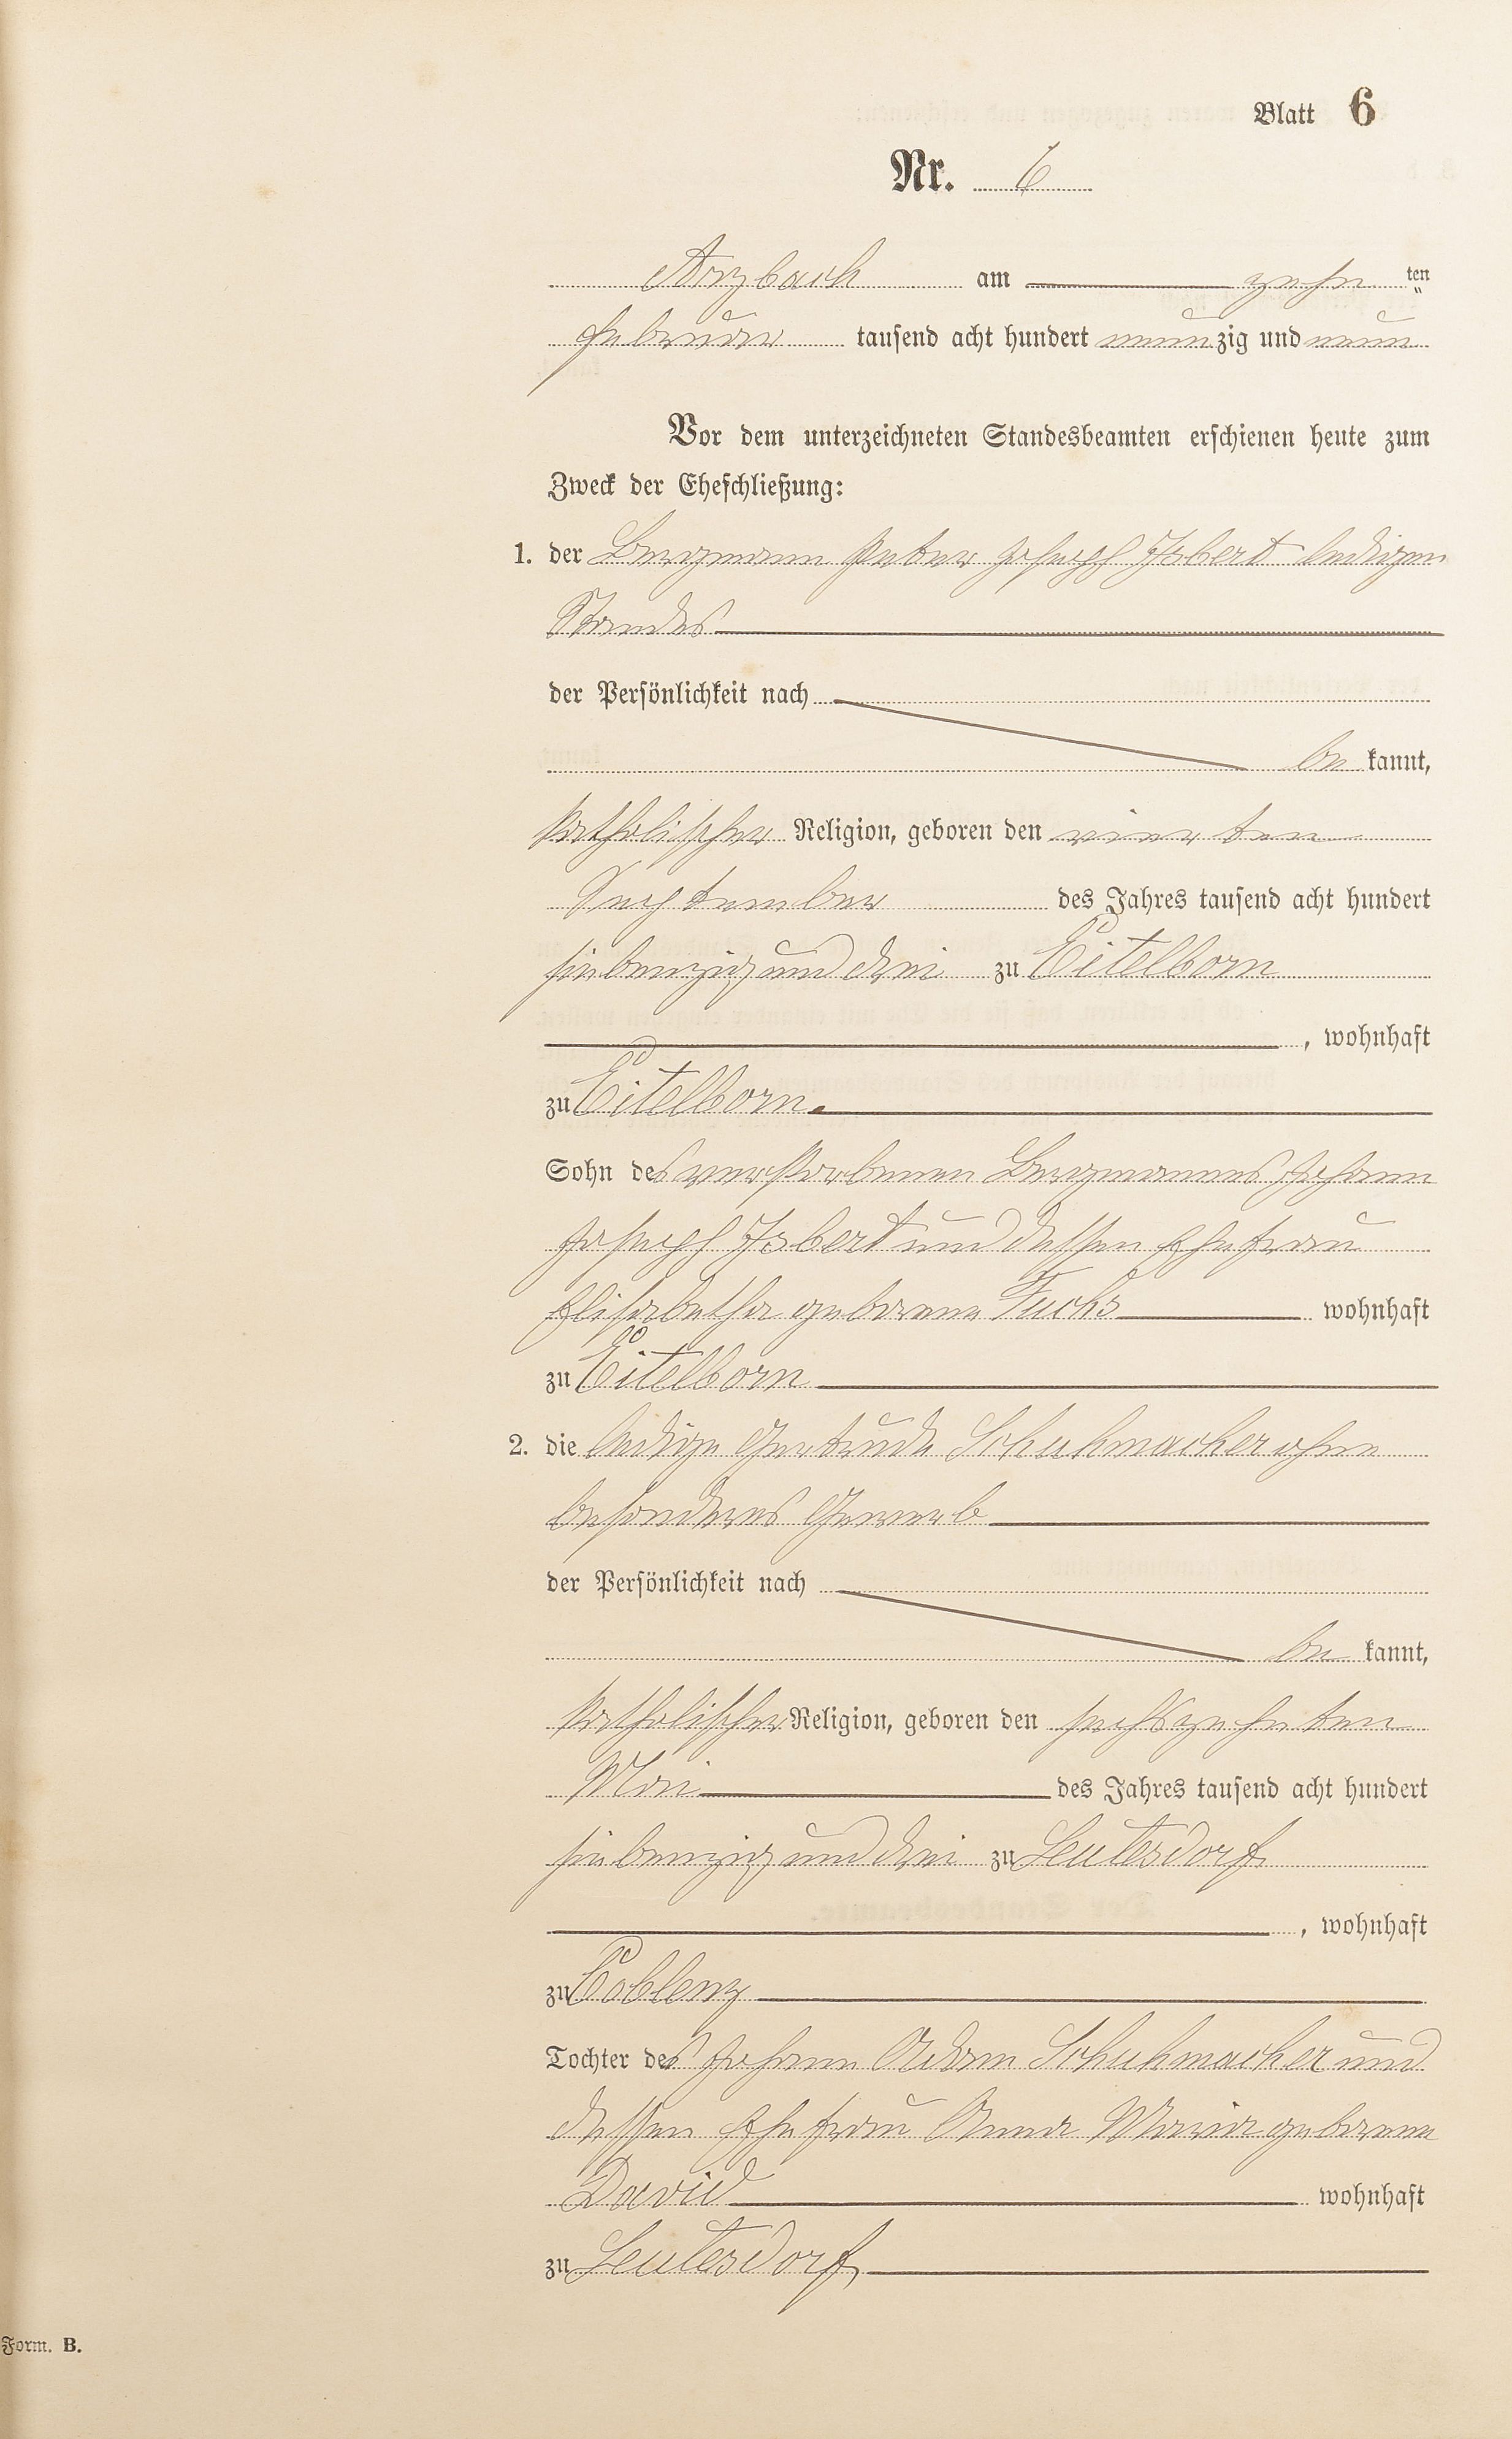 Blatt 6
Nr. 6
Arzbach am zehn ten
Februar tausend acht hundert neunzig und neun
Vor dem unterzeichneten Standesbeamten erschienen heute zum
Zweck der Eheschließung:
1. der Bergmann Peter Joseph Isbert ledigen
Standes
der Persönlichkeit nach
be kannt,
katholischer Religion, geboren den vierten
September des Jahres tausend acht hundert
siebenzig und drei zu Eitelborn
, wohnhaft
zu Eitelborn.
Sohn des verstorbenen Bergmannes Johann
Joseph Isbert und dessen Ehefrau
Elisabetha geborene Fuchs wohnhaft
zu Eitelborn
2. die ledige Gertrude Schuhmacher ohne
besonderes Gewerb
der Persönlichkeit nach
be kannt,
katholischer Religion, geboren den sechszehnten
Mai des Jahres tausend acht hundert
siebenzig und drei zu Leutesdorf
, wohnhaft
zu Coblenz
Tochter des Johann Adam Schuhmacher und
dessen Ehefrau Anna Maria geborene
David wohnhaft
zu Leutesdorf,
Form. B.